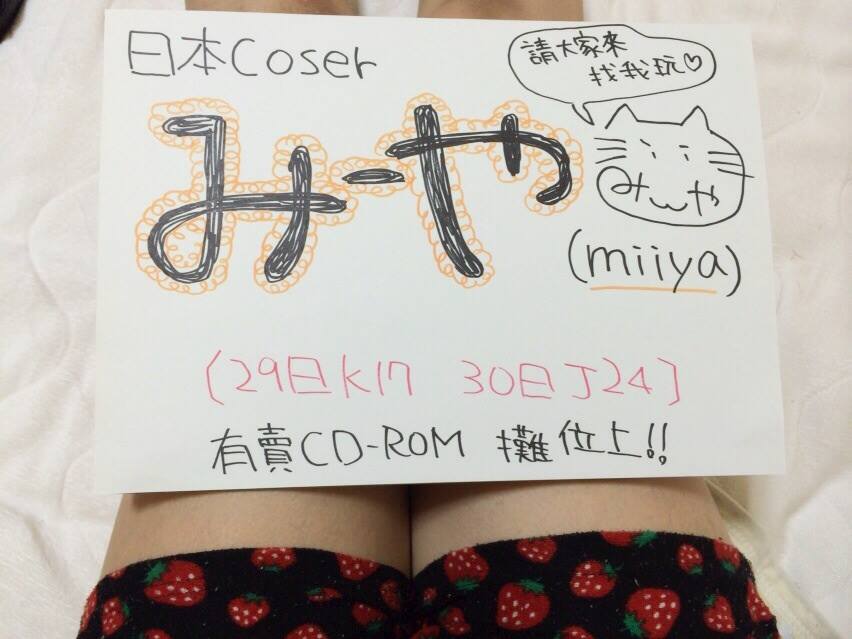 日本Coser
請大家來
找我玩♡
みーや
みーや
(miiya)
(29日K17 30日J24)
有賣CD-ROM 攤位上!!